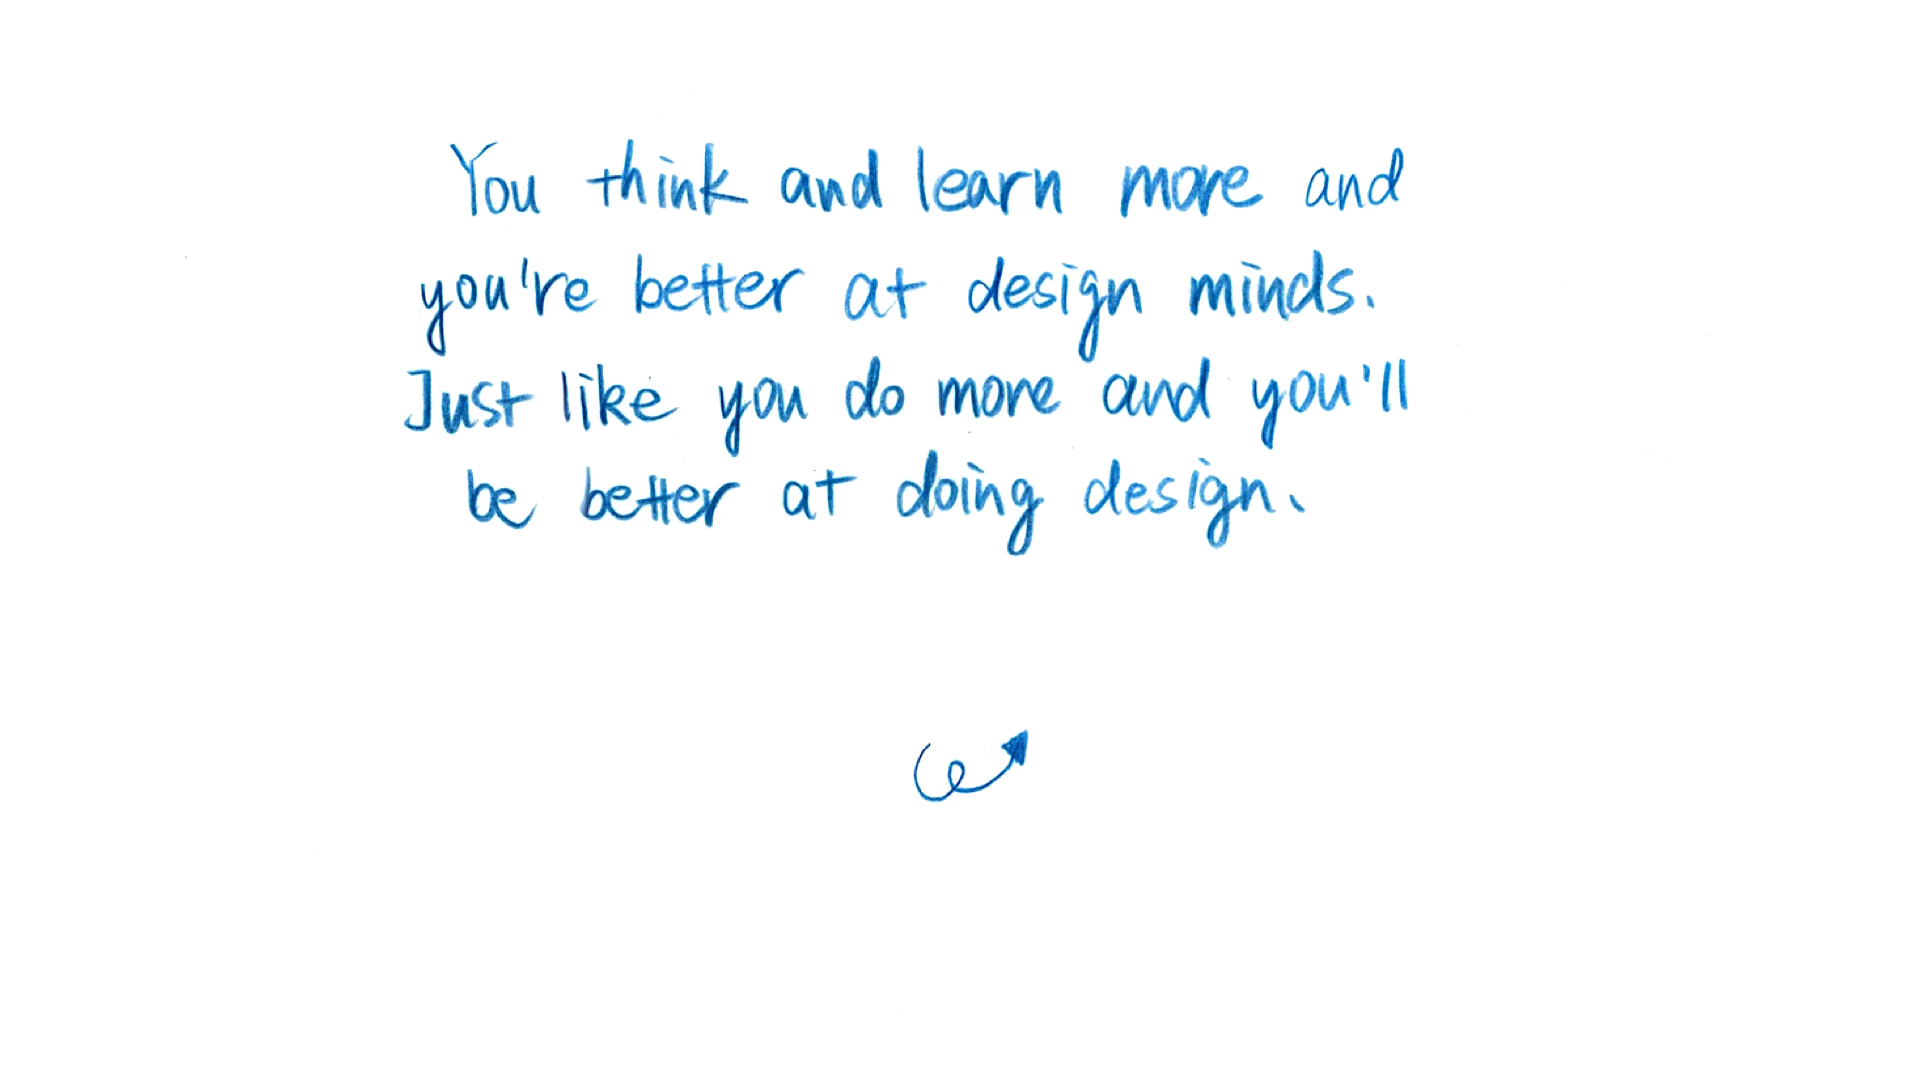 You think and learn more and
you're better at design minds.
Just like you do more and you'll
be better at doing design.